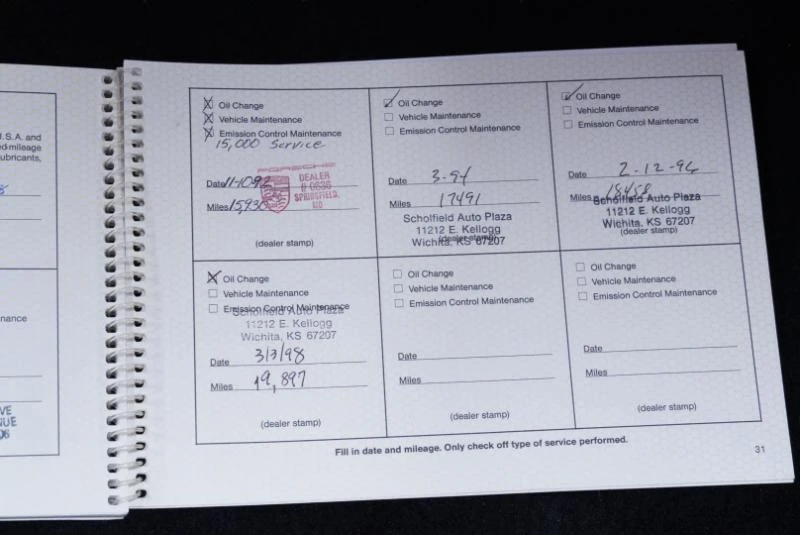 U.S.A. and
ed mileage
lubricants,
nance
VE
NUE
06
☒ Oil Change
☒ Vehicle Maintenance
☒ Emission Control Maintenance
15,000 Service
Date 11-10-92
Miles 15,930
PORSCHE
DEALER
# 0636
SPRINGFIELD,
MO
(dealer stamp)
☑ Oil Change
☐ Vehicle Maintenance
☐ Emission Control Maintenance
Date 3-94
Miles 17491
Scholfield Auto Plaza
11212 E. Kellogg
Wichita, KS 67207
(dealer stamp)
☑ Oil Change
☐ Vehicle Maintenance
☐ Emission Control Maintenance
Date 2-12-96
Miles 18458
Scholfield Auto Plaza
11212 E. Kellogg
Wichita, KS 67207
(dealer stamp)
☒ Oil Change
☐ Vehicle Maintenance
☐ Emission Control Maintenance
Scholfield Auto Plaza
11212 E. Kellogg
Wichita, KS 67207
Date 3/3/98
Miles 19,897
(dealer stamp)
☐ Oil Change
☐ Vehicle Maintenance
☐ Emission Control Maintenance
Date
Miles
(dealer stamp)
☐ Oil Change
☐ Vehicle Maintenance
☐ Emission Control Maintenance
Date
Miles
(dealer stamp)
Fill in date and mileage. Only check off type of service performed.
31